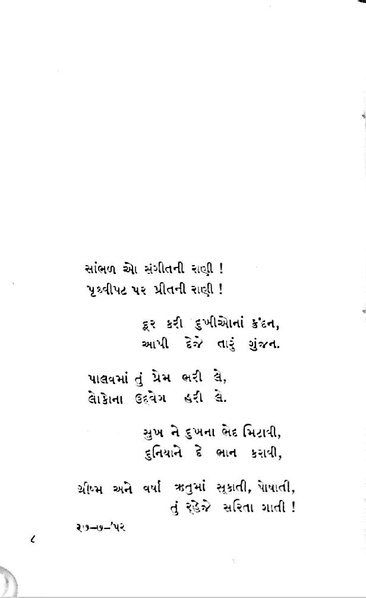 સાંભળ ઓ સંગીતની રાણી !
પૃથ્વીપટ પર પ્રીતની રાણી !
દૂર કરી દુખીઓનાં ક્રંદન,
આપી દેજે તારું ગુંજન.
પાલવમાં તું પ્રેમ ભરી લે,
લોકોના ઉદ્વેગ હરી લે.
સુખ ને દુખના ભેદ મિટાવી,
દુનિયાને દે ભાન કરાવી,
ગ્રીષ્મ અને વર્ષા ઋતુમાં સૂકાતી, પોષાતી,
તું રહેજે સરિતા ગાતી !
૮